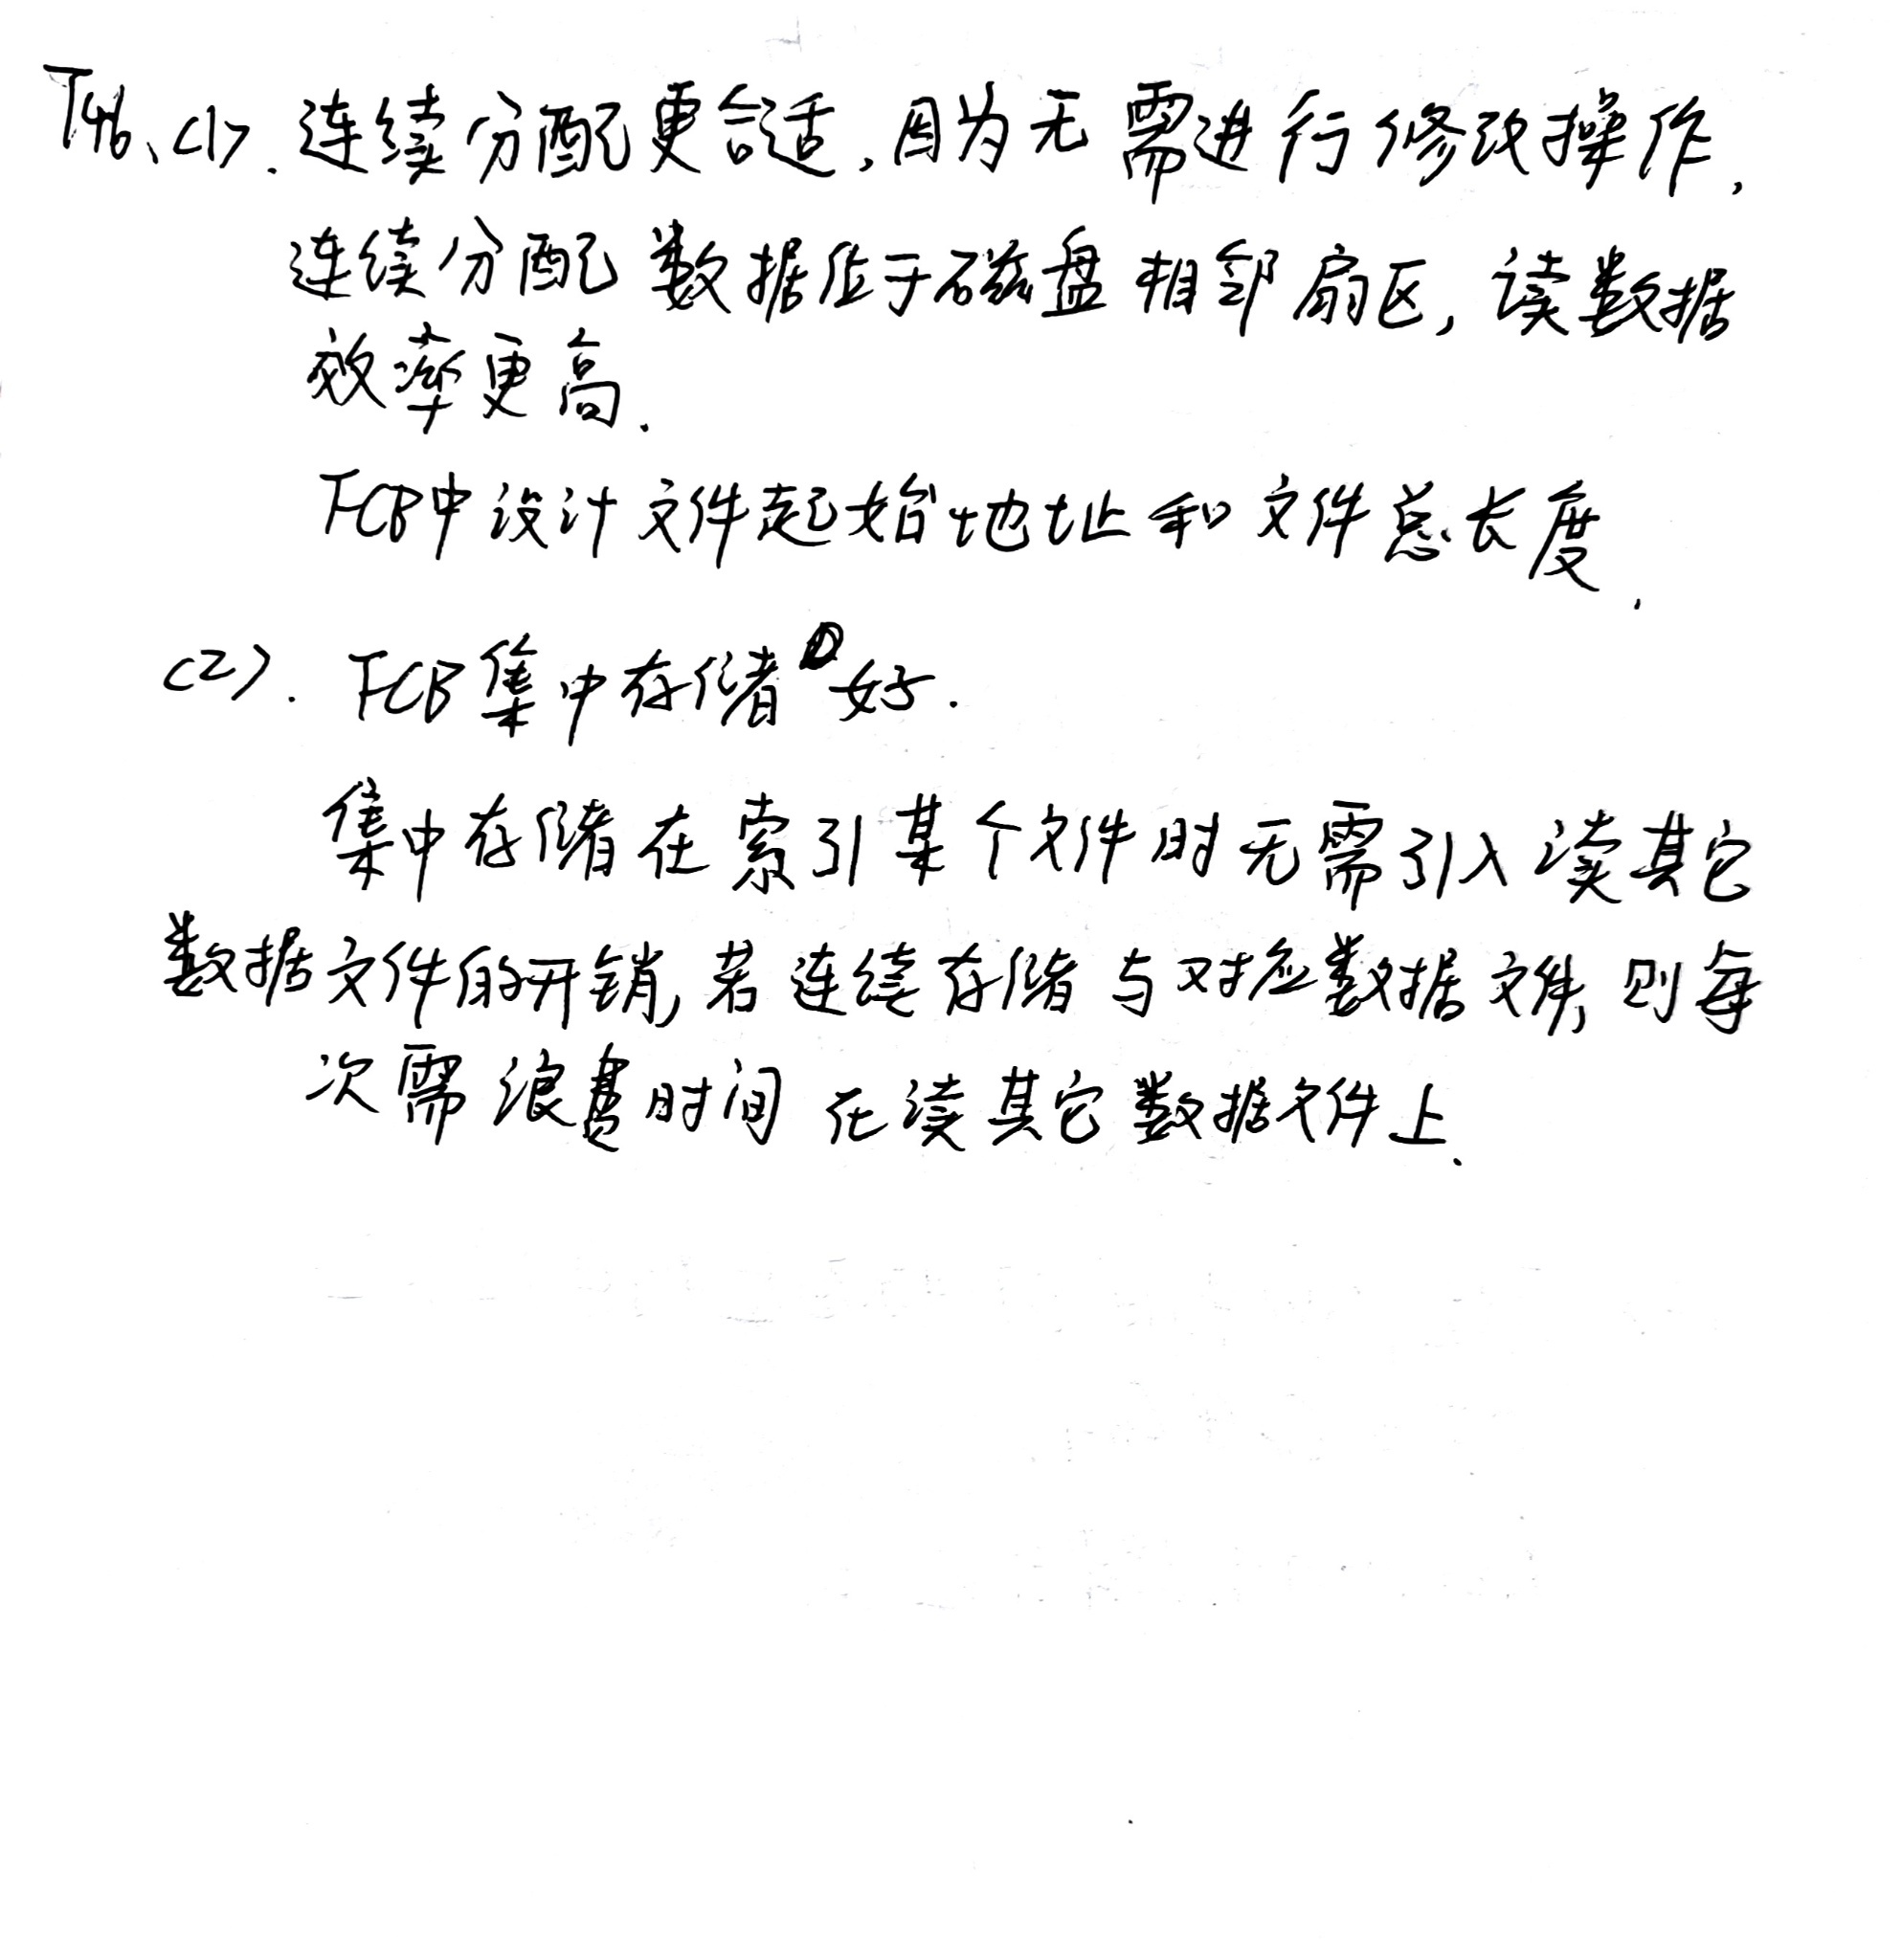 T46、(1). 连续分配更合适,因为无需进行修改操作.
连续分配 数据位于磁盘相邻扇区,读数据
效率更高.
FCB中设计文件起始地址和文件总长度.
(2). FCB集中存储好.
集中存储在索引某个文件时无需引入读其它
数据文件的开销,若连续存储与对应数据文件,则每
次需浪费时间在读其它数据文件上.